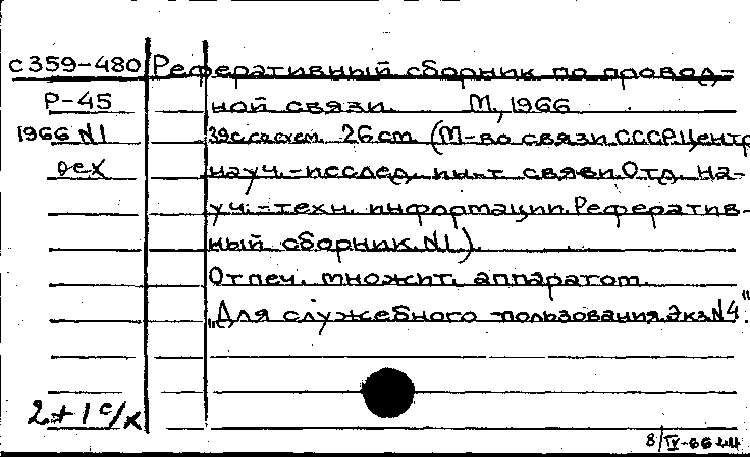 с359-480 Реферативный сборник по провод-
Р-45 ной связи. М., 1966
1966 N1 39с. со схем. 26 cm (М-во связи СССР. Центр
оех науч.-исслед. ин-т связи. Отд. на-
уч.-техн. информации. Реферативный
ный сборник. N1).
Отпеч. множит. аппаратом.
"Для служебного пользования. Экз. N4".
2+1 с/х
8/IV-66